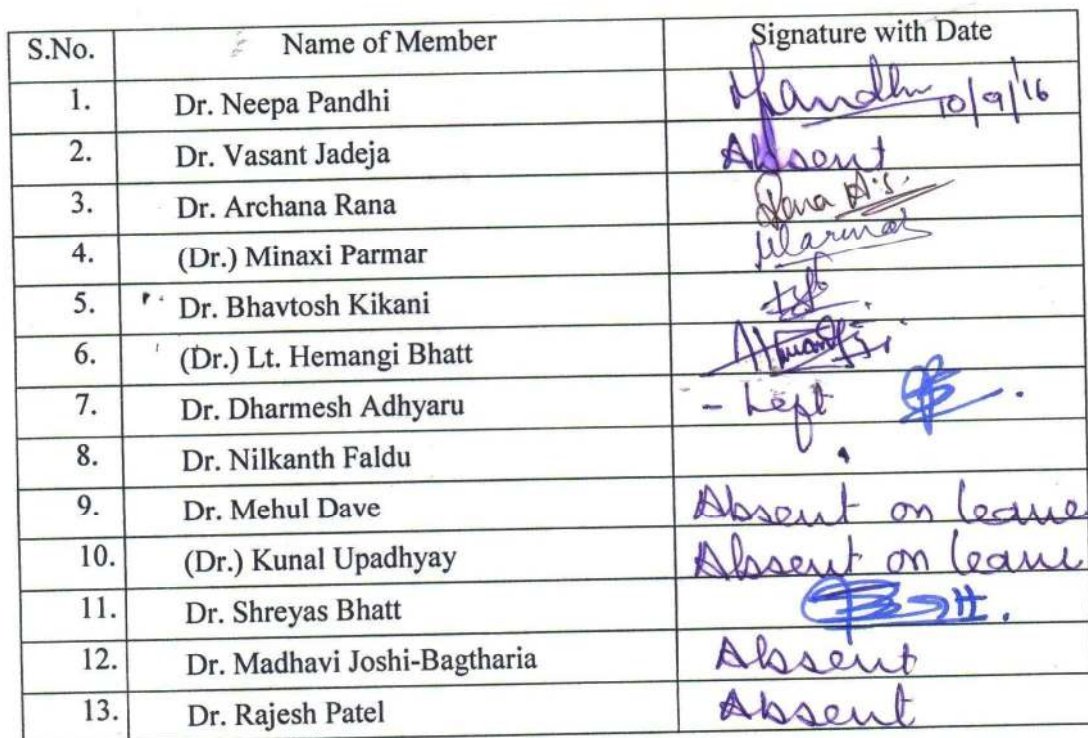 S.No. Name of Member Signature with Date
1. Dr. Neepa Pandhi Pandhi 10/9/16
2. Dr. Vasant Jadeja Absent
3. Dr. Archana Rana Rana A.S.
4. (Dr.) Minaxi Parmar
5. Dr. Bhavtosh Kikani
6. (Dr.) Lt. Hemangi Bhatt
7. Dr. Dharmesh Adhyaru - Left
8. Dr. Nilkanth Faldu
9. Dr. Mehul Dave Absent on leave
10. (Dr.) Kunal Upadhyay Absent on leave
11. Dr. Shreyas Bhatt
12. Dr. Madhavi Joshi-Bagtharia Absent
13. Dr. Rajesh Patel Absent